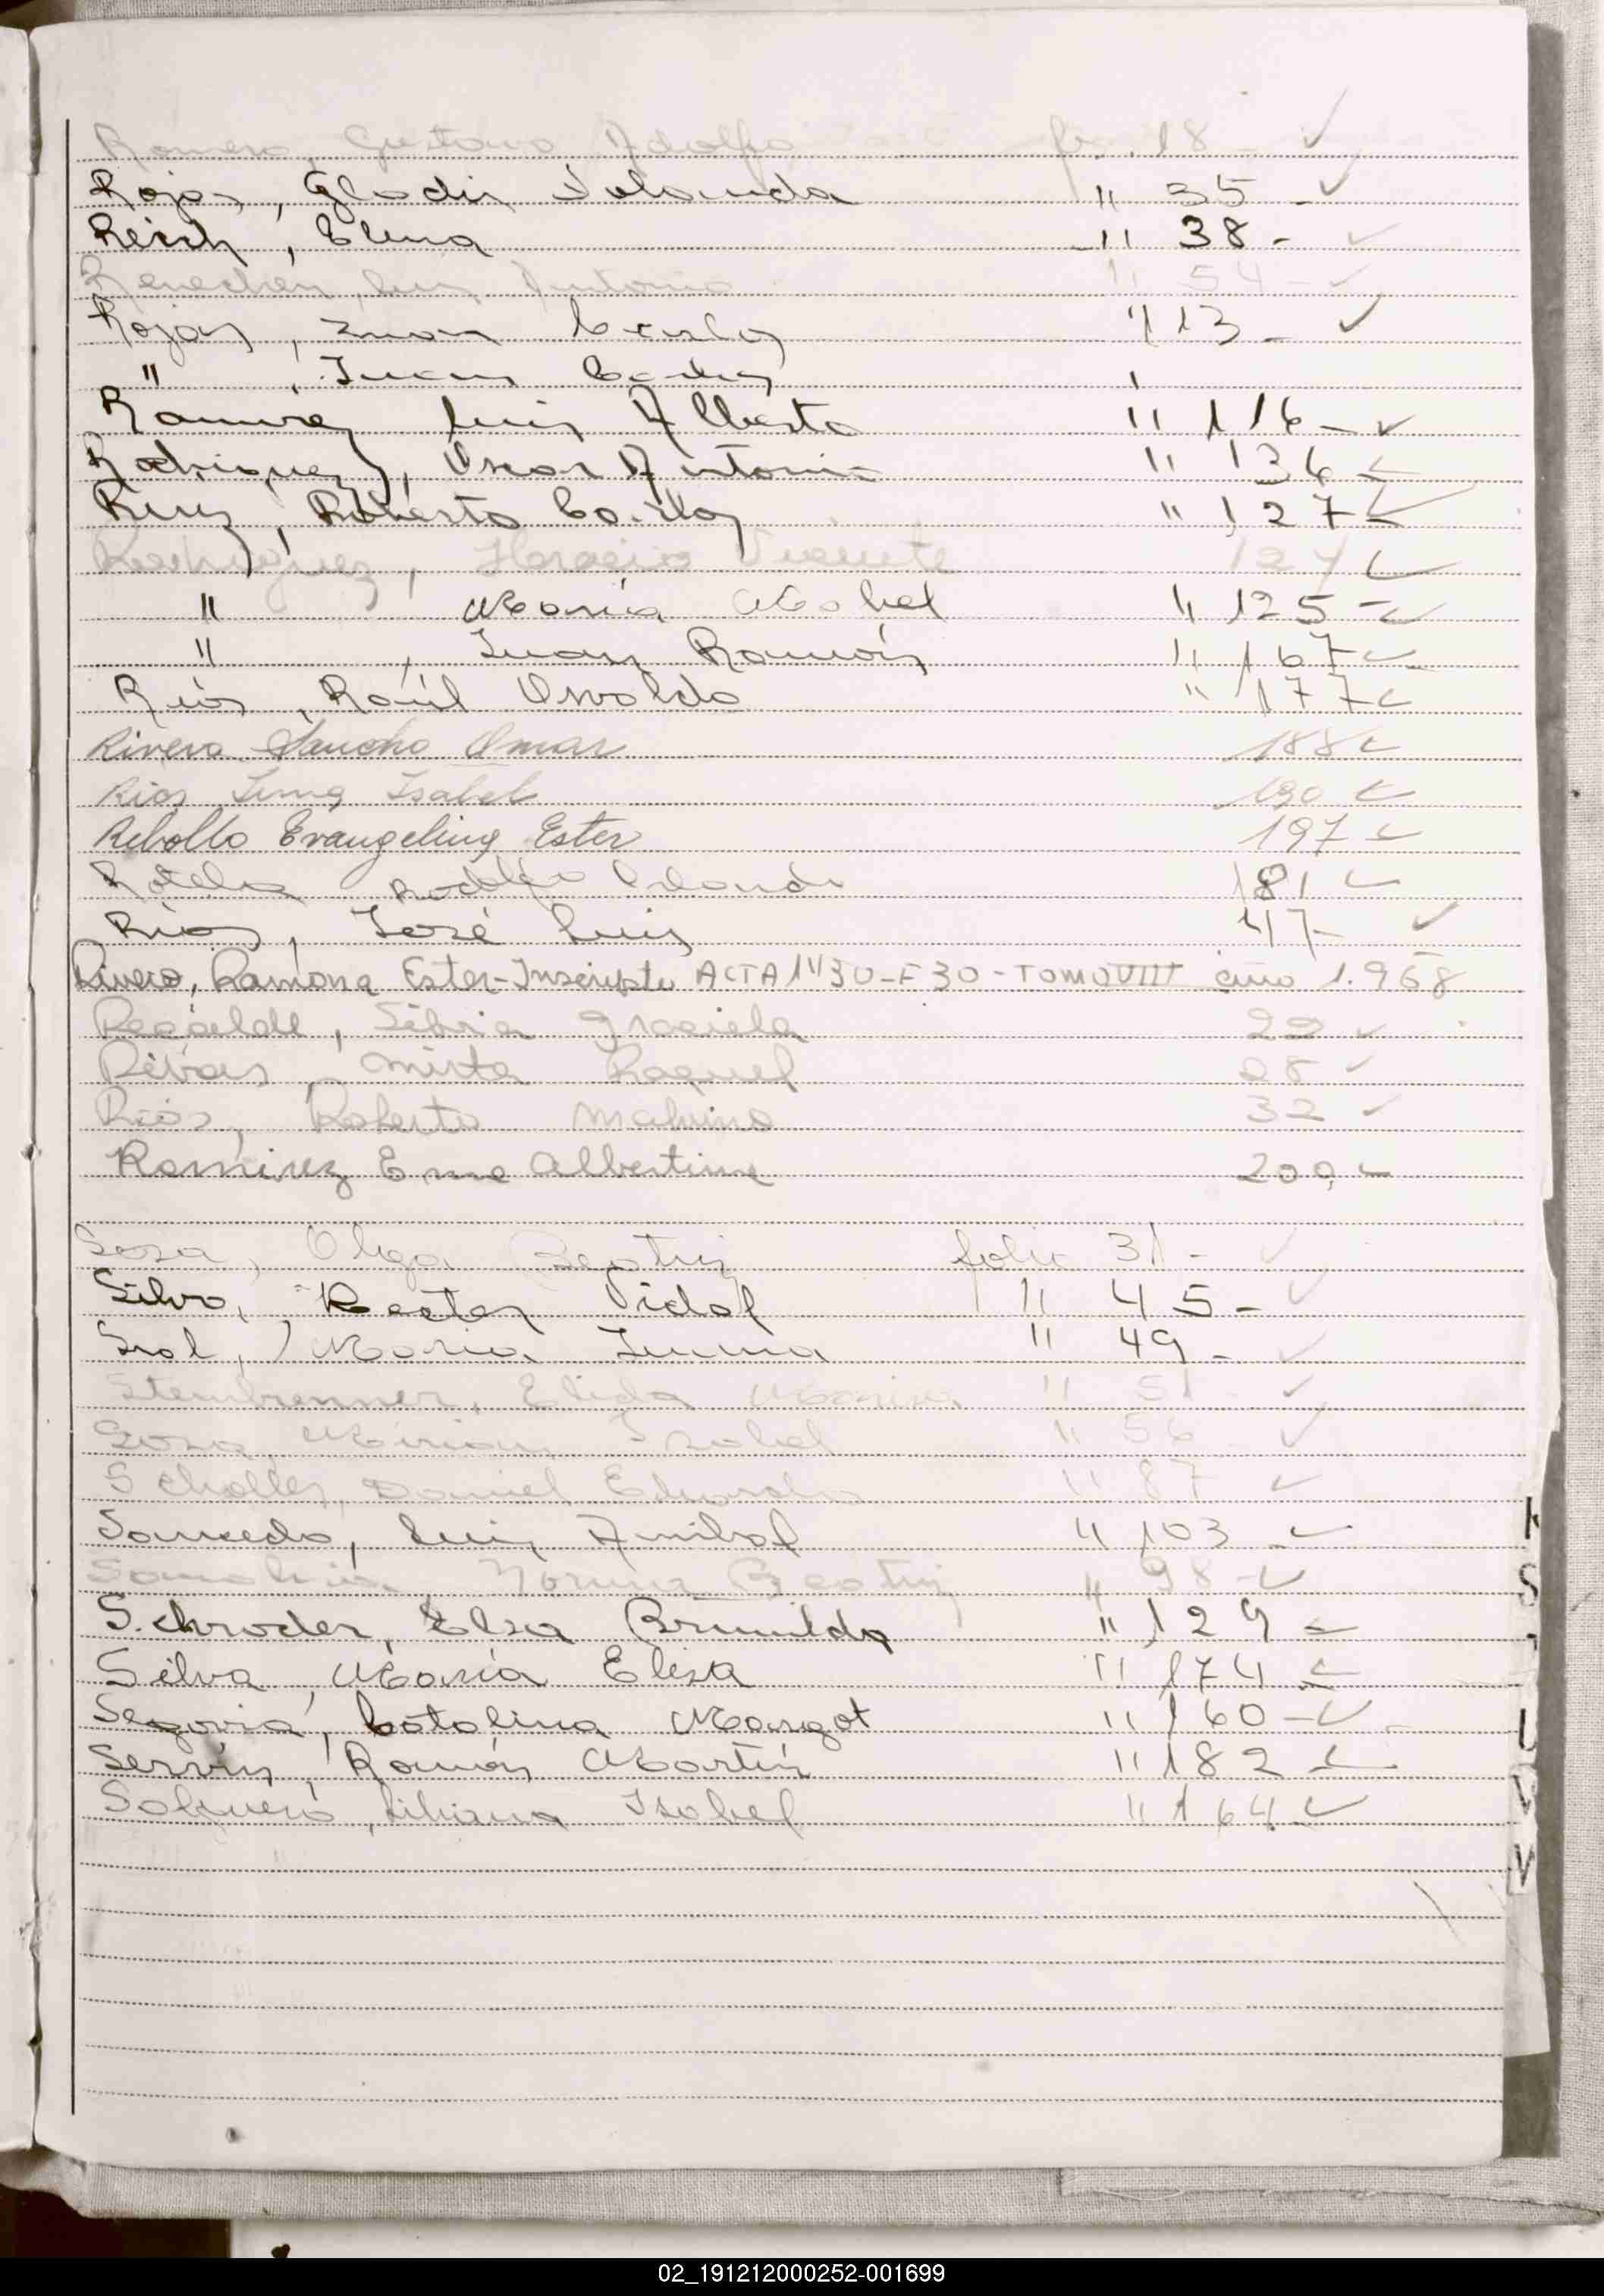 Romero, Gustavo Adolfo fo. 18 - ✓
Rojas, Gladis Iolanda " 35 - ✓
Reich, Elena " 38 - ✓
Luis Antonio " 54 - ✓
Rojas, Juan Carlos " 113 - ✓
" , Juan Carlos
Ramirez Luis Alberto " 116 - ✓
Rodriguez, Oscar Antonio " 136 ✓
Ruiz, Roberto Carlos " 127 ✓
Rodriguez, Horacio Vicente 124 ✓
" María Mabel " 125 - ✓
" , Juan Ramón " 167 ✓
Ríos, Raúl Osvaldo " 177 ✓
Rivero Sancho Omar 188 ✓
Rios Irma Isabel 190 ✓
Rebollo Evangelina Ester 197 ✓
Rodolfo 181 ✓
Ríos, José Luis 47 - ✓
Rivero, Ramona Ester - Inscripta ACTA Nº 30 - F 30 - TOMO VIII año 1.968
Recalde, Silvia Graciela 22 ✓
Rivas, Mirta Raquel 28 ✓
Ríos, Roberto 32 ✓
Ramirez Ema Albertina 200 ✓
Sosa, Olga Beatriz folio 31 - ✓
Silva, Vidal " 45 - ✓
Srol, María Imma " 49 - ✓
Steinbrenner, Elida " 51 - ✓
Sosa Mirian Isabel " 56 ✓
Daniel Eduardo " 87 ✓
Saucedo, Luis Anibal " 103 ✓
Norma Beatriz " 98 - ✓
Schroder, Elsa Brunilda " 129 ✓
Silva, María Elisa " 174 ✓
Segovia, Catalina Margot " 160 - ✓
Servín, Ramón Martín " 182 ✓
Salguero, Liliana Isabel " 164 ✓
02_191212000252-001699